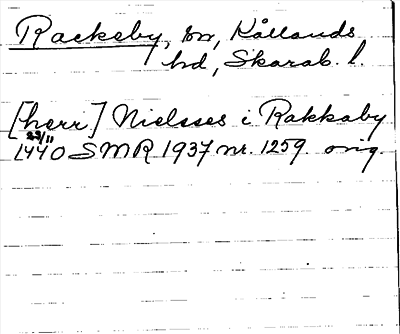 Racksby, sn, Kållands
hd, Skarab. l.
[herr] Nielsses i Rakkaby
23/11
1440 SMR 1937 nr. 1259. orig.